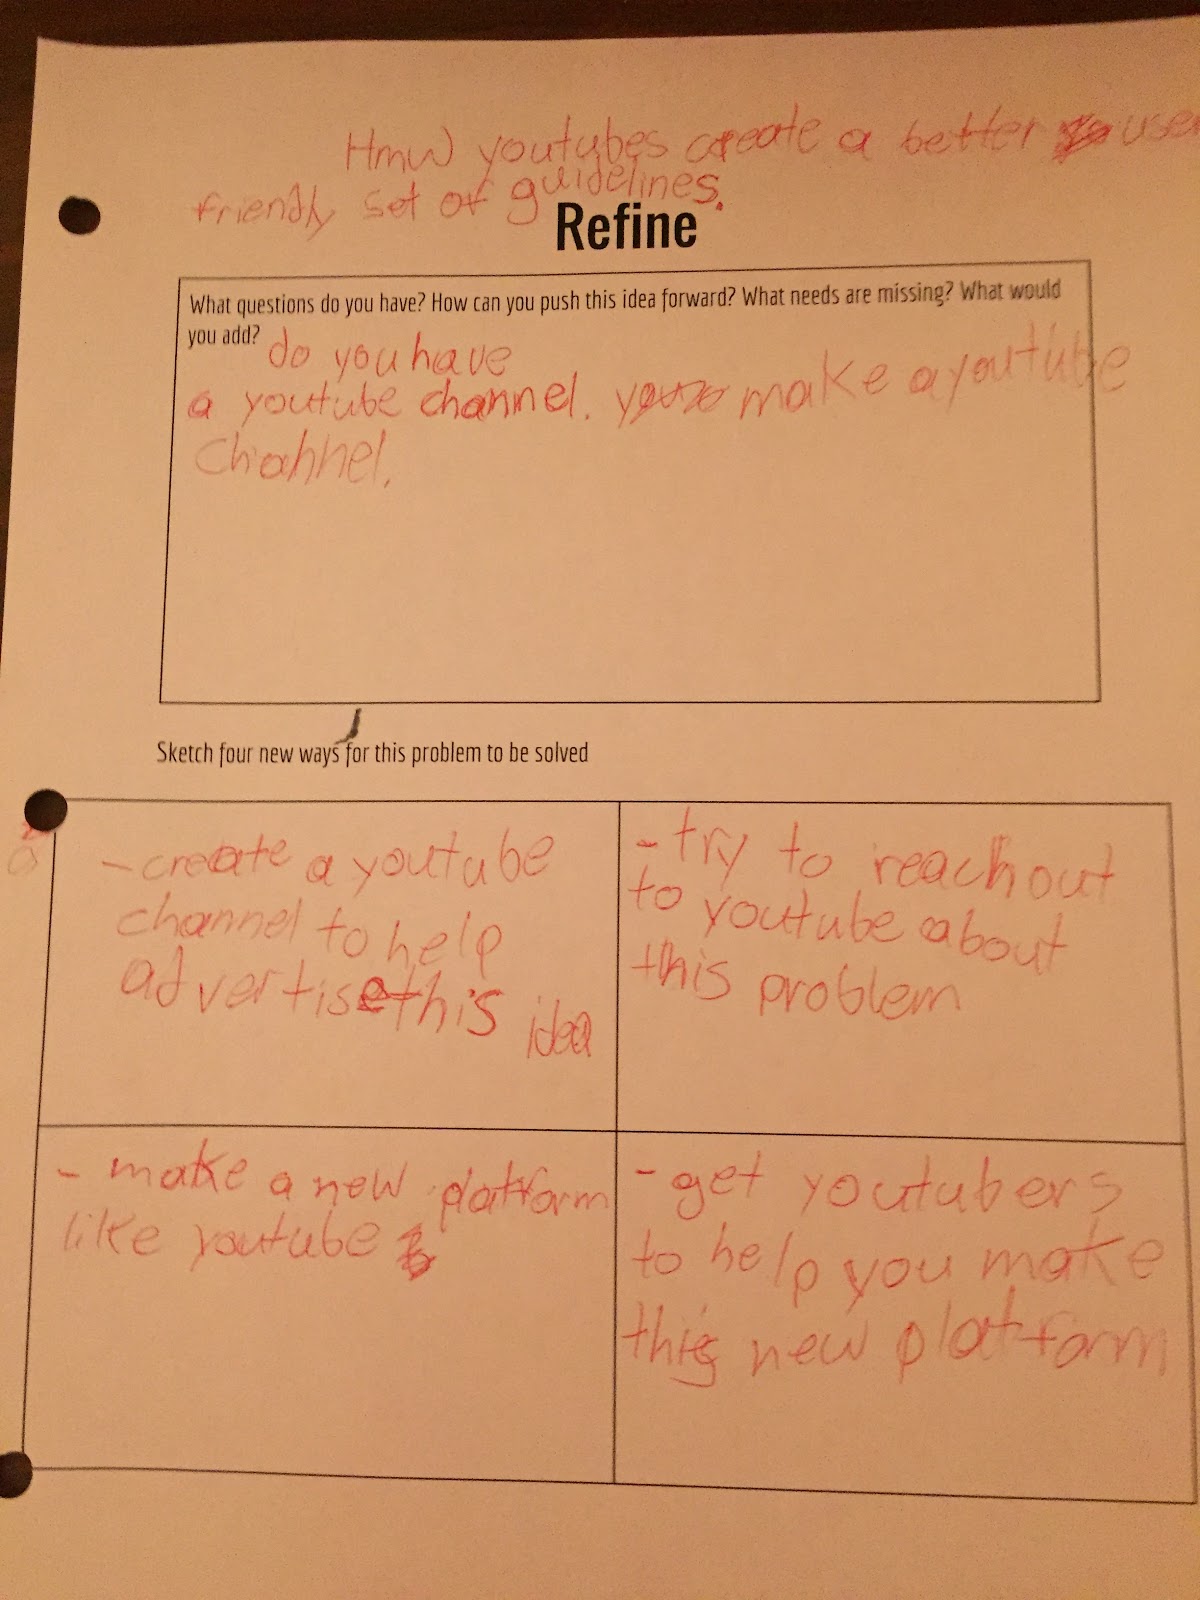 Hmw youtubes create a better user
friendly set of guidelines.
Refine
What questions do you have? How can you push this idea forward? What needs are missing? What would
you add?
do you have
a youtube channel. make a youtube
channel.
Sketch four new ways for this problem to be solved
- create a youtube
channel to help
advertise this idea
- try to reach out
to youtube about
this problem
- make a new platform
like youtube
- get youtubers
to help you make
this new platform